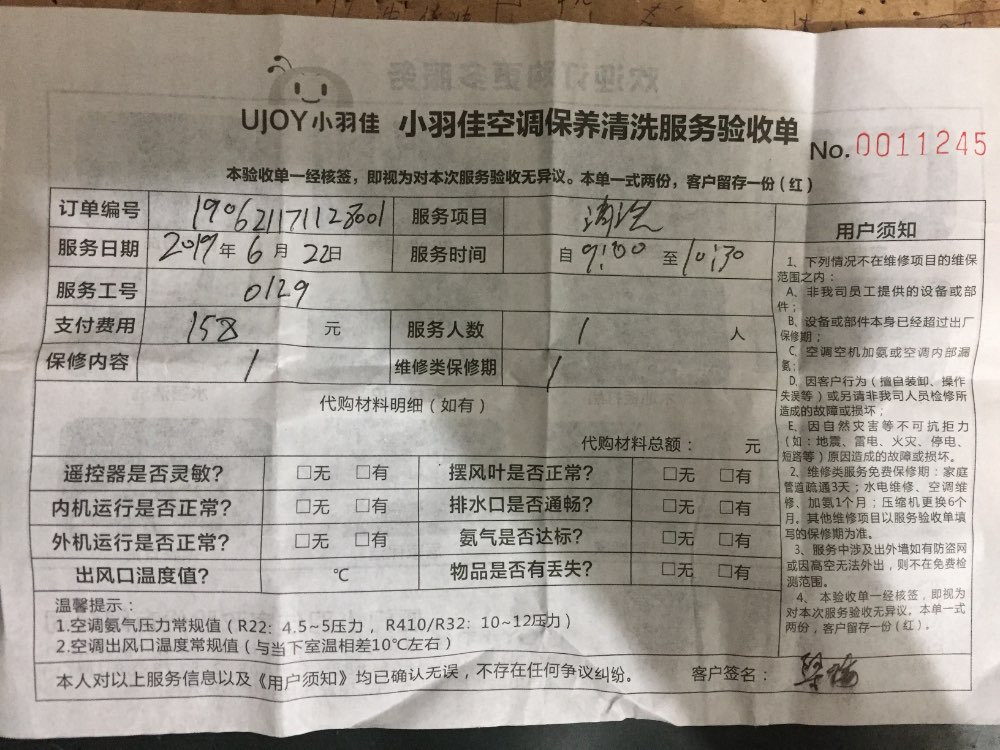 UJOY小羽佳 小羽佳空调保养清洗服务验收单
No.0011245
本验收单一经核签，即视为对本次服务验收无异议。本单一式两份，客户留存一份(红)
订单编号 190621171128001 服务项目 清洗
服务日期 2019年6月22日 服务时间 自9:00至10:30
服务工号 0129
支付费用 158元 服务人数 1人
保修内容 / 维修类保修期 /
代购材料明细（如有）
代购材料总额： 元
遥控器是否灵敏? □无 □有 摆风叶是否正常? □无 □有
内机运行是否正常? □无 □有 排水口是否通畅? □无 □有
外机运行是否正常? □无 □有 氨气是否达标? □无 □有
出风口温度值? ℃ 物品是否有丢失? □无 □有
温馨提示：
1.空调氨气压力常规值（R22：4.5~5压力，R410/R32：10~12压力）
2.空调出风口温度常规值（与当下室温相差10℃左右）
本人对以上服务信息以及《用户须知》均已确认无误，不存在任何争议纠纷。 客户签名：
用户须知
1、下列情况不在维修项目的维保
范围之内：
A、非我司员工提供的设备或部
件；
B、设备或部件本身已经超过出厂
保修期；
C、空调空机加氨或空调内部漏
氨；
D、因客户行为（擅自装卸、操作
失误等）或另请非我司人员检修所
造成的故障或损坏；
E、因自然灾害等不可抗拒力
（如：地震、雷电、火灾、停电、
短路等）原因造成的故障或损坏。
2、维修类服务免费保修期：家庭
管道疏通3天；水电维修、空调维
修、加氨1个月；压缩机更换6个
月。其他维修项目以服务验收单填
写的保修期为准。
3、服务中涉及出外墙如有防盗网
或因高空无法外出，则不在免费检
测范围。
4、本验收单一经核签，即视为
对本次服务验收无异议。本单一式
两份，客户留存一份（红）。